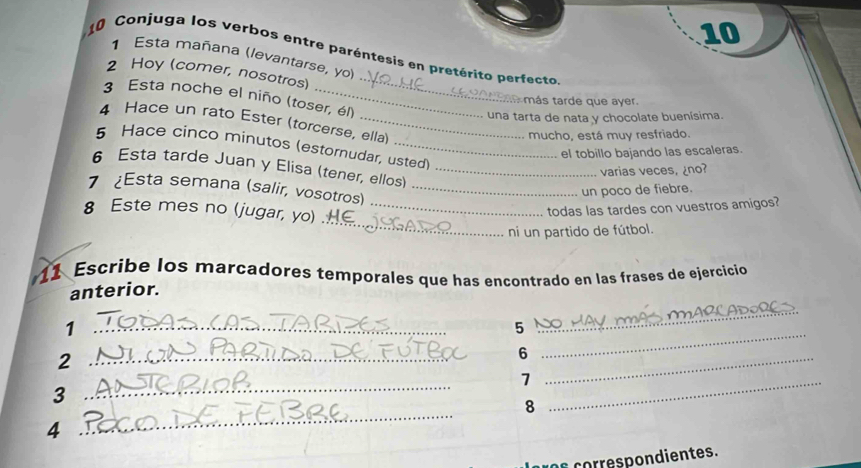 10
10 Conjuga los verbos entre paréntesis en pretérito perfecto.
1 Esta mañana (levantarse, yo) YO ME LEVANTADO más tarde que ayer.
2 Hoy (comer, nosotros) una tarta de nata y chocolate buenísima.
3 Esta noche el niño (toser, él) mucho, está muy resfriado.
4 Hace un rato Ester (torcerse, ella) el tobillo bajando las escaleras.
5 Hace cinco minutos (estornudar, usted) varias veces, ¿no?
6 Esta tarde Juan y Elisa (tener, ellos) un poco de fiebre.
7 ¿Esta semana (salir, vosotros) todas las tardes con vuestros amigos?
8 Este mes no (jugar, yo) HE JUGADO ni un partido de fútbol.
11 Escribe los marcadores temporales que has encontrado en las frases de ejercicio
anterior.
1 TODAS LAS TARDES
2 NI UN PARTIDO DE FÚTBOL
3 ANTERIOR
4 POCO DE FEBRE
5 NO HAY MÁS MARCADORES
6
7
8
correspondientes.